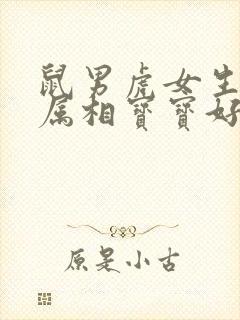 鼠男虎女生
属相寳寳好
原是小古